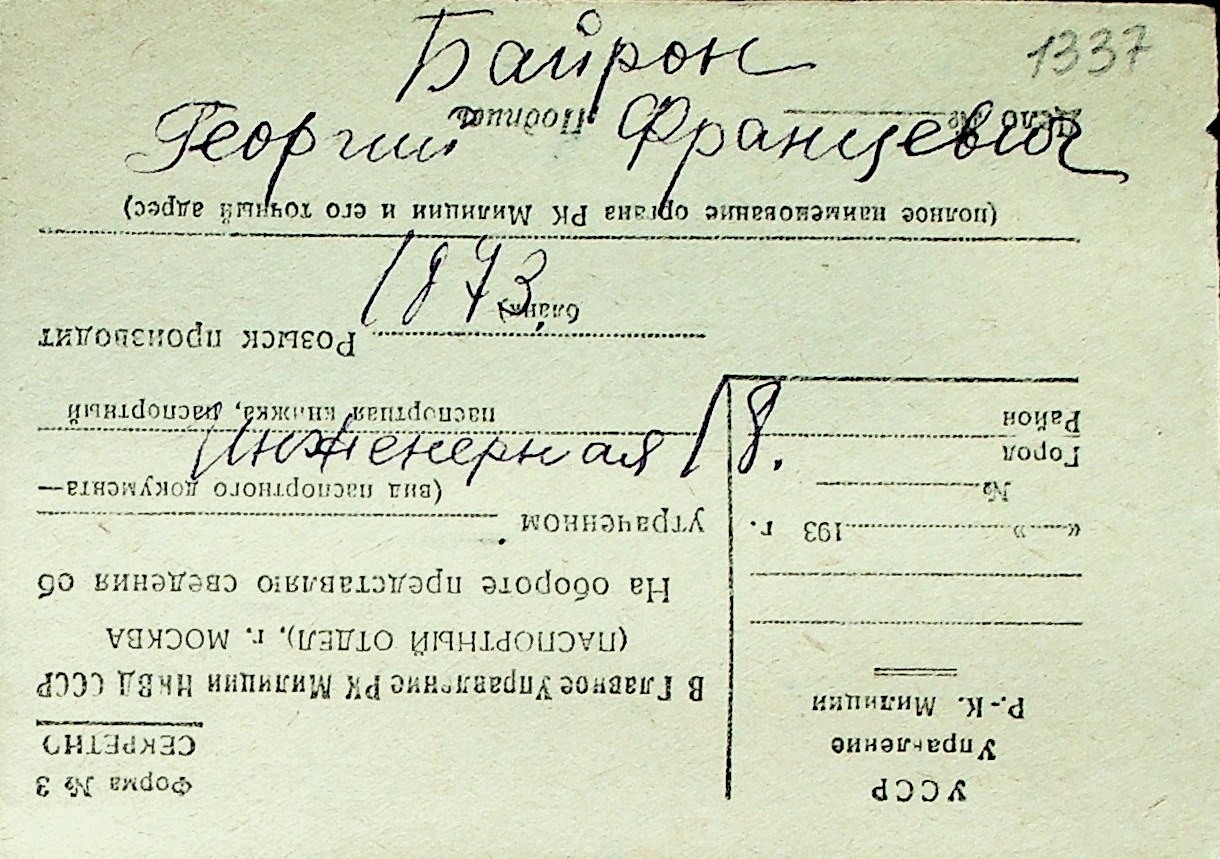 1337
Байрон
Георгий Францевич
1873
Инженерная 18.
УССР
Управление
Р.-К. Милиции
«----» 193 г.
№
Город
Район
Форма № 3
СЕКРЕТНО
В Главное Управление РК Милиции НКВД СССР
(ПАСПОРТНЫЙ ОТДЕЛ), г. МОСКВА
На обороте представляю сведения об
утраченном
(вид паспортного документа—
паспортная книжка, паспортный
бланк)
Розыск производит
(полное наименование органа РК Милиции и его точный адрес)
Дело № Подпись